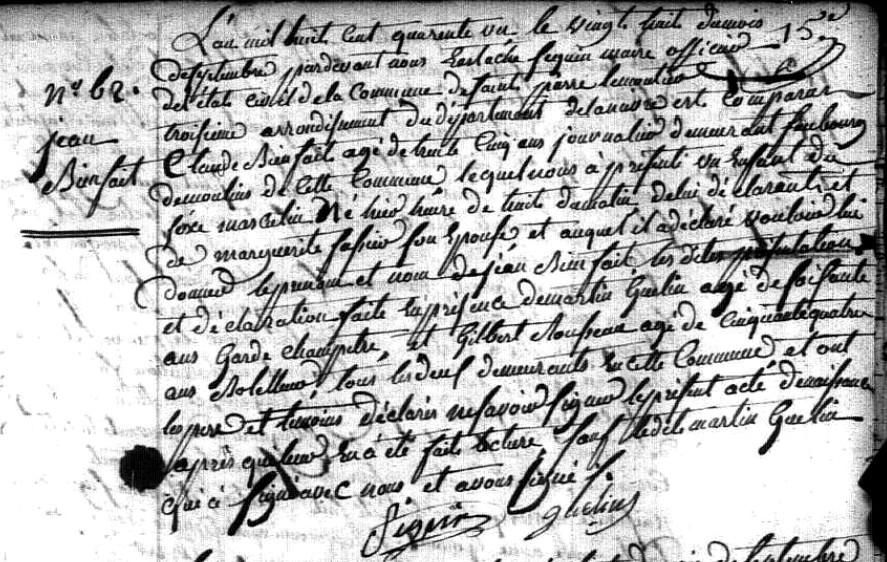 L'an mil huit cent quarente un le vingt huit dumois
15e
deseptembre pardevant nous Eustache seguin maire officier
nº 62.
del'état civil dela Commune desaint pierre lemoutier
troisieme arrondissement du département delanievre est Comparu
jean
Bienfait
Claude Bienfait agé detrente Cinq ans journalier demeurant faubourg
demoulins de Cette Commune lequel nous à présenté un Enfant du
sexe masculin Né hier heure de huit dumatin delui déclarant et
de marguerite son Epouse et auquel il a déclaré vouloir lui
donner leprenom et nom dejean Bienfait les dites présentation
et déclaration faite En présence demartin Guelin agé de soisante
ans Garde champetre et Gilbert Rousseau agé de Cinquantequatre
ans tous les deux demeurants En Cette Commune et ont
les pere et témoins déclarés nesavoir signer leprésent acte denaissance
après quil leur En a été fait lecture sauf ledit martin Guelin
qui à signé avec nous et avons signé
Séguin guelin
deseptembre